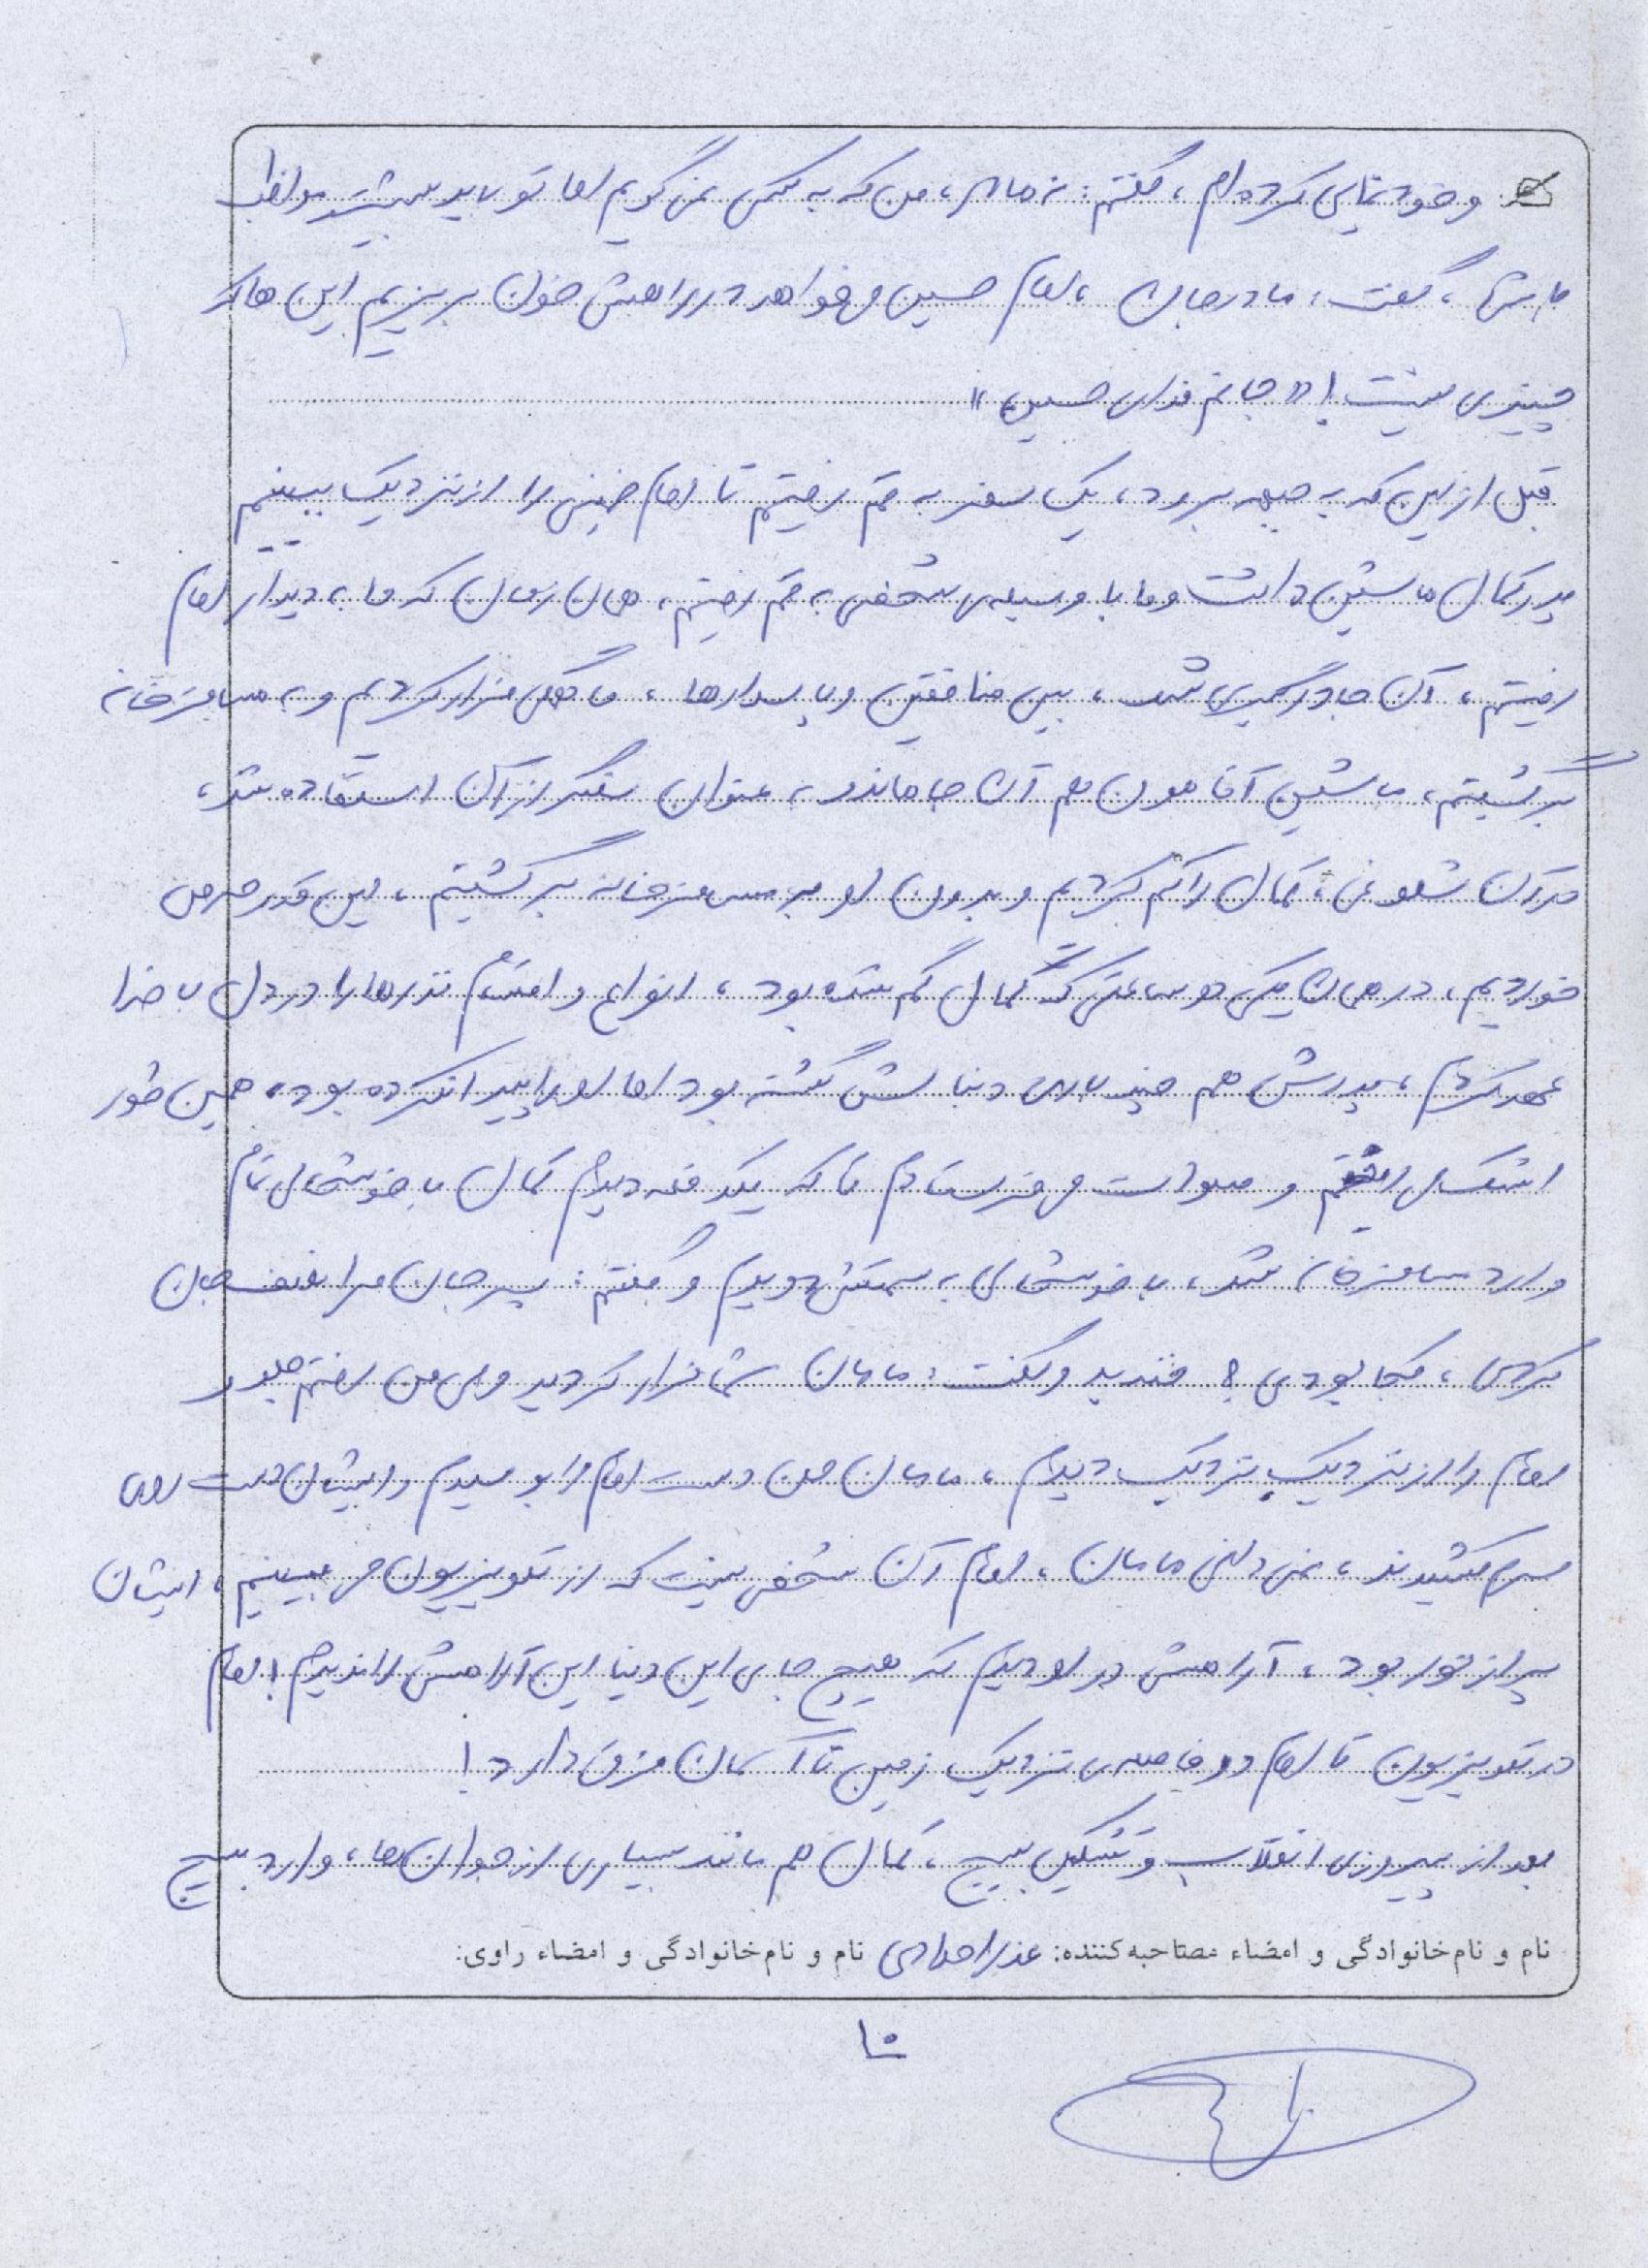 و خودنمایی کرده‌ام، گفتم: نه مادر، من که به کسی نمی گویم اما تو باید بیشتر مواظب
باشی، گفت: مادرجان، امام حسین می خواهد در راهش خون بریزیم این ها که
چیزی نیست! «جانم فدای حسین»
قبل از این که به جبهه برود، یک سفر به قم رفتیم تا امام خمینی را از نزدیک ببینیم
پدر کمال ماشین داشت و ما با وسیله‌ی شخصی به قم رفتیم، همان زمان که ما به دیدار امام
رفتیم، آن جا درگیری شد، بین منافقین و پاسدارها، ما همگی فرار کردیم و به مسافرخانه
برگشتیم، ماشین آقامون هم آن جا ماند و به عنوان سنگر از آن استفاده شد،
در آن شلوغی، کمال را گم کردیم و بدون او به مسافرخانه برگشتیم، این قدر حرص
خوردیم، در همان یکی دو ساعتی که کمال گم شده بود، انواع و اقسام نذرها را در دل با خدا
عهد کردم، پدرش هم چند باری دنبالش گشته بود اما او را پیدا نکرده بود، همین طور
اشک می ریختم و صلوات می فرستادم تا که یکدفعه دیدم کمال با خوشحالی تمام
وارد مسافرخانه شد، با خوشحالی به سمتش دویدم و گفتم: پسرجان مرا نصف جان
کردی، کجا بودی؟ خندید و گفت: مامان شما فرار کردید ولی من رفتم جلو و
امام را از نزدیک نزدیک دیدم، مامان من دست امام را بوسیدم و ایشان دست روی
سرم کشیدند، نمی دانی مامان، امام آن شخصی نیست که از تلویزیون می بینیم، ایشان
پر از نور بود، آرامشی در او دیدم که هیچ جای این دنیا این آرامش را ندیدم! امام
در تلویزیون تا امام در فاصله‌ی نزدیک زمین تا آسمان فرق دارد!
بعد از پیروزی انقلاب و تشکیل بسیج، کمال هم مانند بسیاری از جوان ها، وارد بسیج
نام و نام‌خانوادگی و امضاء مصاحبه‌کننده: عذرا نام و نام‌خانوادگی و امضاء راوی: